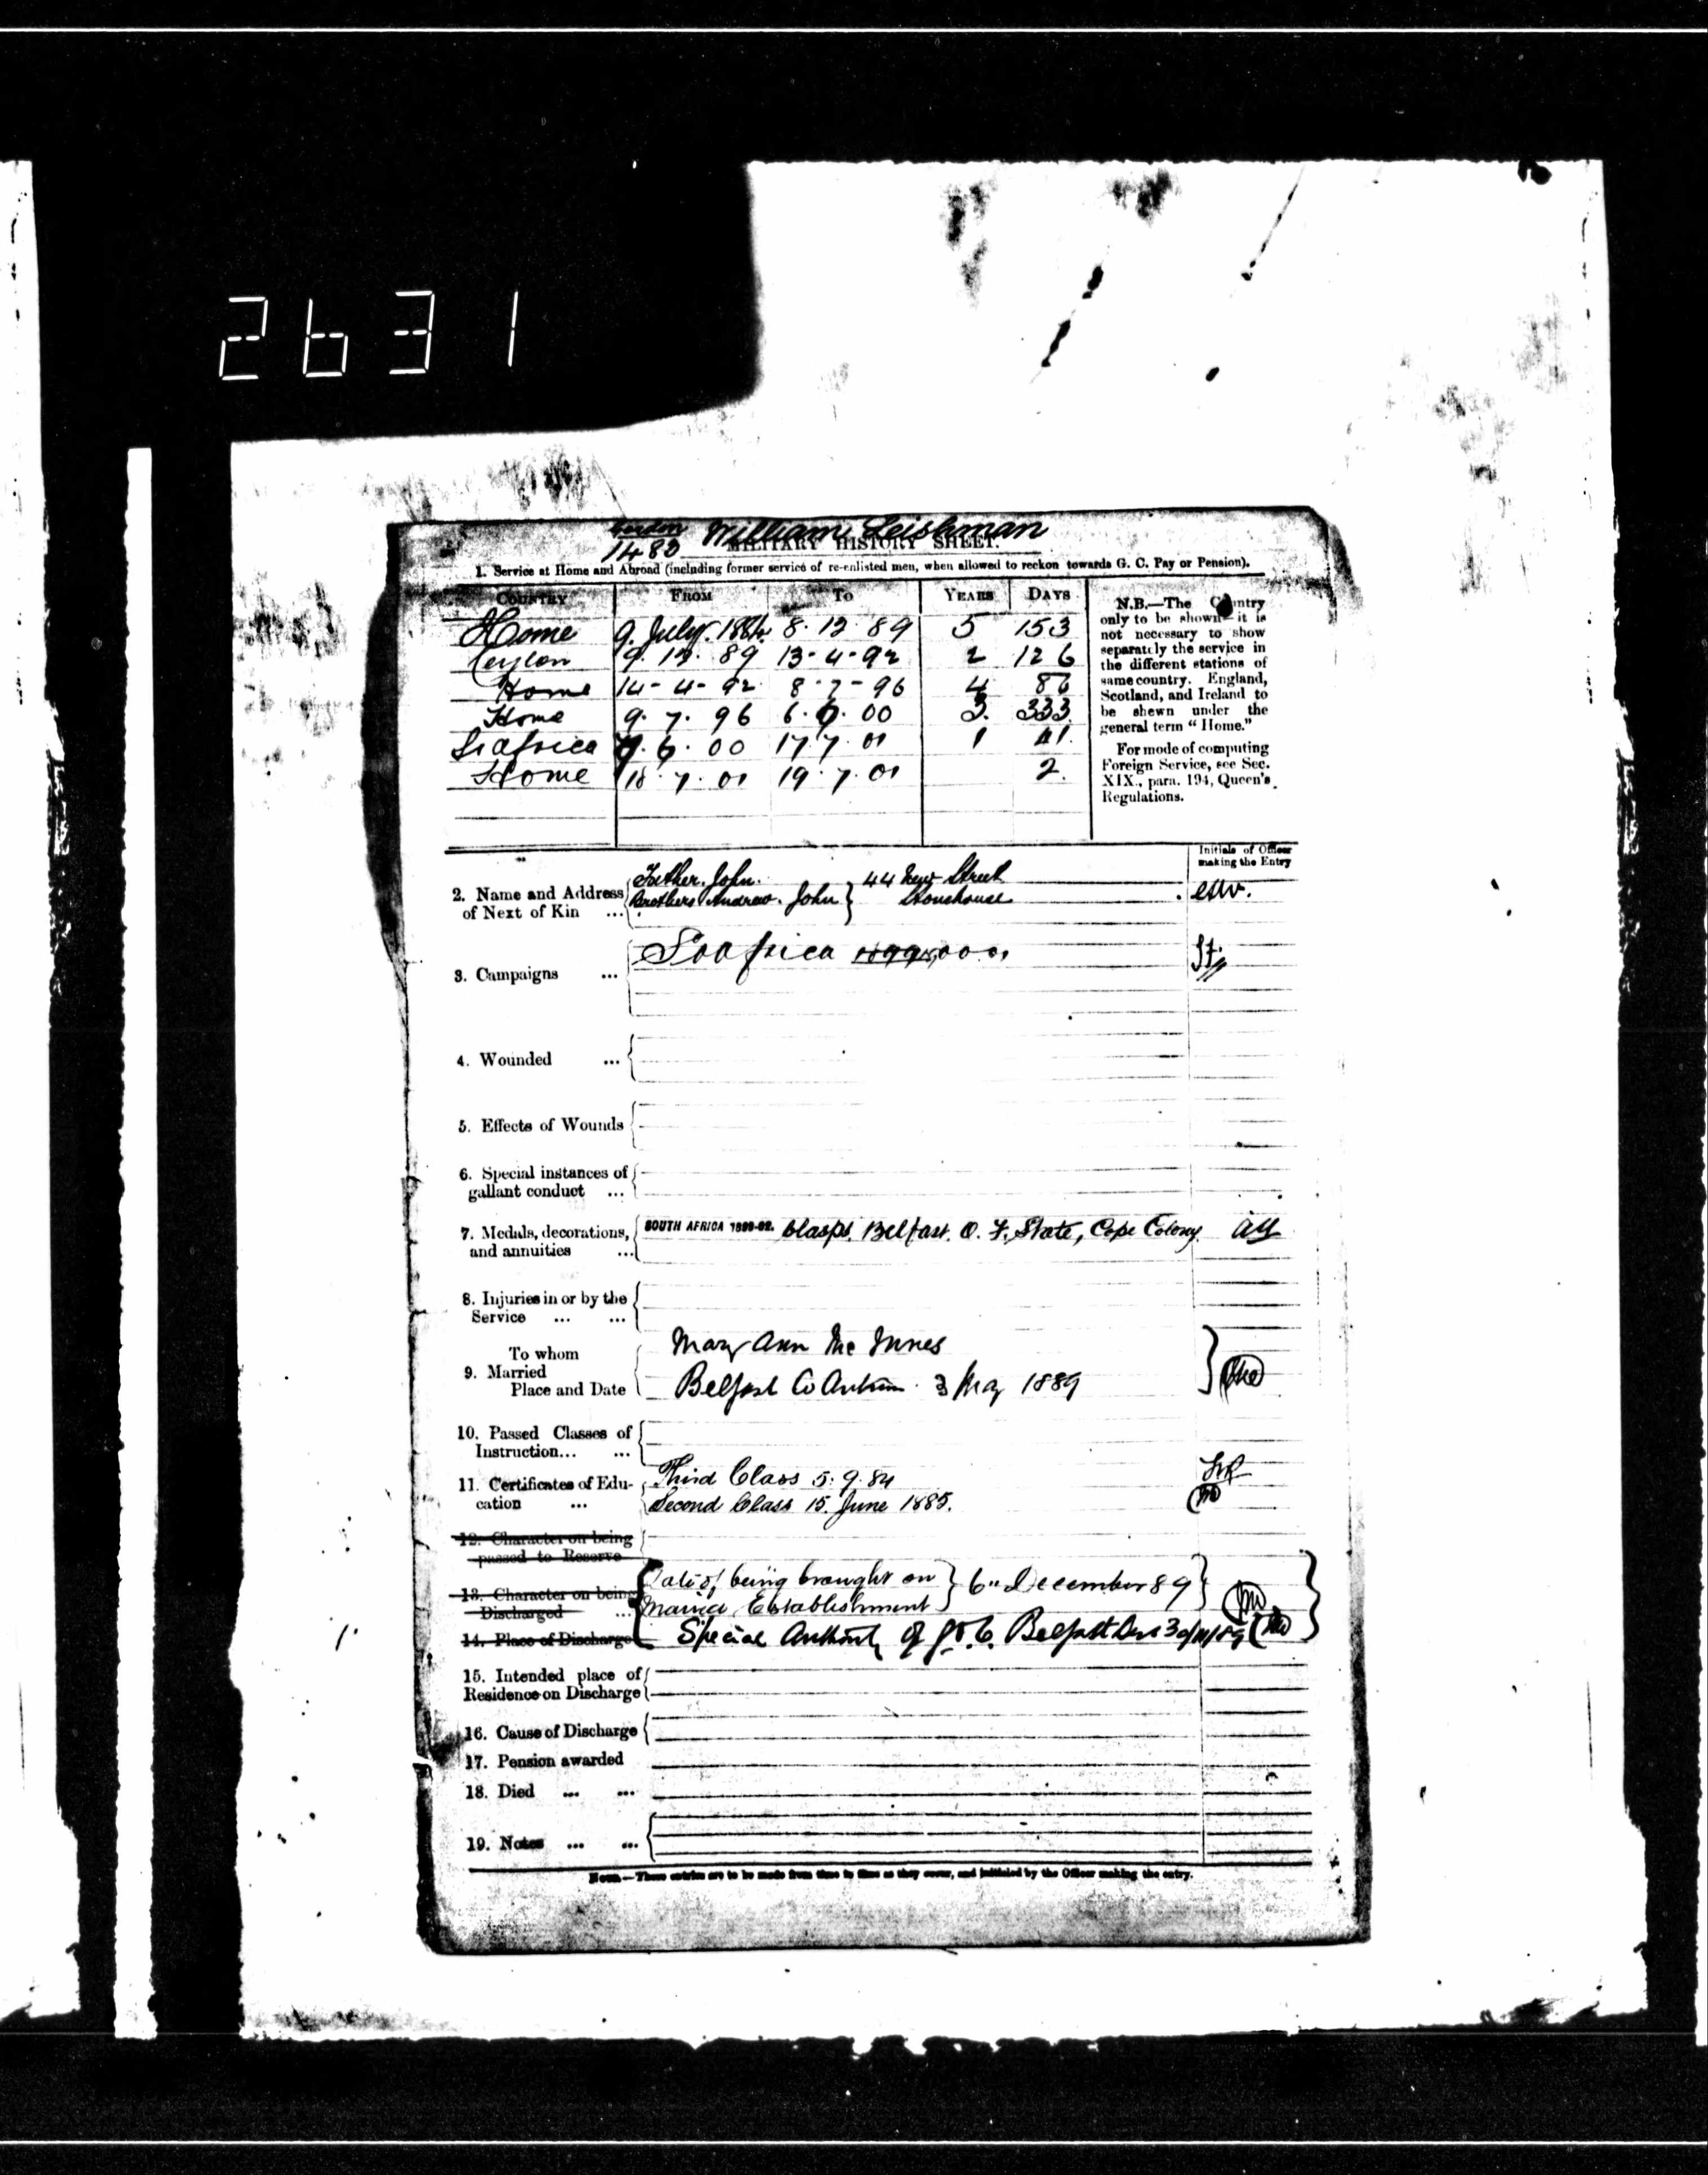 2631
Gordon William Leishman
1483 MILITARY HISTORY SHEET.
1. Service at Home and Abroad (including former service of re-enlisted men, when allowed to reckon towards G. C. Pay or Pension).
COUNTRY FROM To YEARS DAYS
Home 9. July. 1884 8. 12 89 5 153
Ceylon 9. 12. 89 13-4-92 2 126
Home 14-4-92 8-7-96 4 86
Home 9. 7. 96 6. 6. 00 3. 333
S. Africa 7. 6. 00 17. 7. 01 1 41.
Home 18. 7. 01 19. 7. 01 2.
N.B.—The Country
only to be shown—it is
not necessary to show
separately the service in
the different stations of
same country. England,
Scotland, and Ireland to
be shewn under the
general term "Home."
For mode of computing
Foreign Service, see Sec.
XIX., para. 194, Queen's
Regulations.
Initials of Officer
making the Entry
2. Name and Address Father. John. 44 New Street
of Next of Kin ... Brothers Andrew. John Stonehouse
3. Campaigns ... S. Africa
4. Wounded ...
5. Effects of Wounds
6. Special instances of
gallant conduct ...
7. Medals, decorations, SOUTH AFRICA 1899-02. Clasps. Belfast. O. F. State, Cape Colony
and annuities ...
8. Injuries in or by the
Service ... ...
To whom Mary Ann Mc Innes
9. Married
Place and Date Belfast Co Antrim 3 May 1889
10. Passed Classes of
Instruction... ...
11. Certificates of Edu- Third Class 5. 9. 84
cation ... Second Class 15. June 1885.
12. Character on being
passed to Reserve
Date of being brought on 6" December 89
13. Character on being
Discharged ... Married Establishment
14. Place of Discharge Special Authority of Belfast
15. Intended place of
Residence on Discharge
16. Cause of Discharge
17. Pension awarded
18. Died ... ...
19. Notes ... ...
NOTE.—These entries are to be made from time to time as they occur, and initialed by the Officer making the entry.